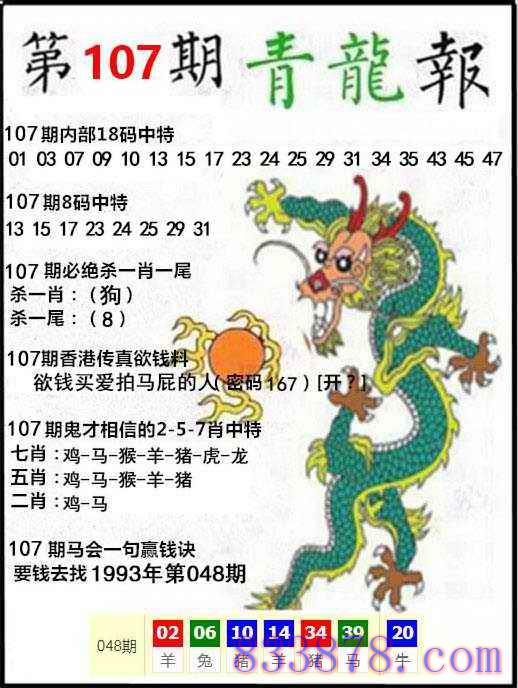 第107期 青龍報
107期内部18码中特
01 03 07 09 10 13 15 17 23 24 25 29 31 34 35 43 45 47
107期8码中特
13 15 17 23 24 25 29 31
107期必绝杀一肖一尾
杀一肖：（狗）
杀一尾：（8）
107期香港传真欲钱料
欲钱买爱拍马屁的人(密码167)[开？]
107期鬼才相信的2-5-7肖中特
七肖：鸡-马-猴-羊-猪-虎-龙
五肖：鸡-马-猴-羊-猪
二肖：鸡-马
107期马会一句赢钱诀
要钱去找1993年第048期
048期 02 06 10 14 34 39 20
羊 兔 猪 羊 猪 马 牛
833878.com